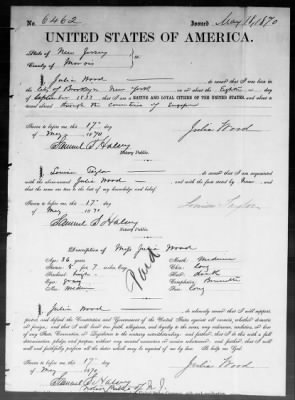 No. 6462 Issued May 18, 1870
UNITED STATES OF AMERICA.
State of New Jersey
County of Morris
I Julia Wood do swear that I was born in
the City of Brooklyn New York on the Eighth day
of September 1833 that I am a NATIVE AND LOYAL CITIZEN OF THE UNITED STATES, and about to
travel through the Countries of Europe
Sworn to before me this 17th
day of May 1870
Julia Wood
Samuel S Halsey
Notary Public.
I Louisa Taylor do swear that I am acquainted
with the above-named Julia Wood and with the facts stated by her and that
the same are true to the best of my knowledge and belief.
Sworn to before me this 17th
day of May 1870
Louisa Taylor
Samuel S Halsey
Notary Public.
Description of Miss Julia Wood
Age: 36 years Mouth: Medium
Stature: 5 feet 7 inches, Eng. Chin: Long
Forehead: high Hair: dark
Eyes: gray Complexion: Brunette
Nose: Medium Face: Long
I Julia Wood do solemnly swear that I will support,
protect, and defend the Constitution and Government of the United States against all enemies, whether domestic
or foreign, and that I will bear true faith, allegiance, and loyalty to the same, any ordinance, resolution, or law
of any State, Convention, or Legislature to the contrary notwithstanding; and further, that I do this with a full
determination, pledge, and purpose, without any mental reservation or evasion whatsoever; and further, that I will
well and faithfully perform all the duties which may be required of me by law. So help me God.
Sworn to before me this 17th
day of May 1870
Julia Wood
Samuel S Halsey
Notary Public of N. J.